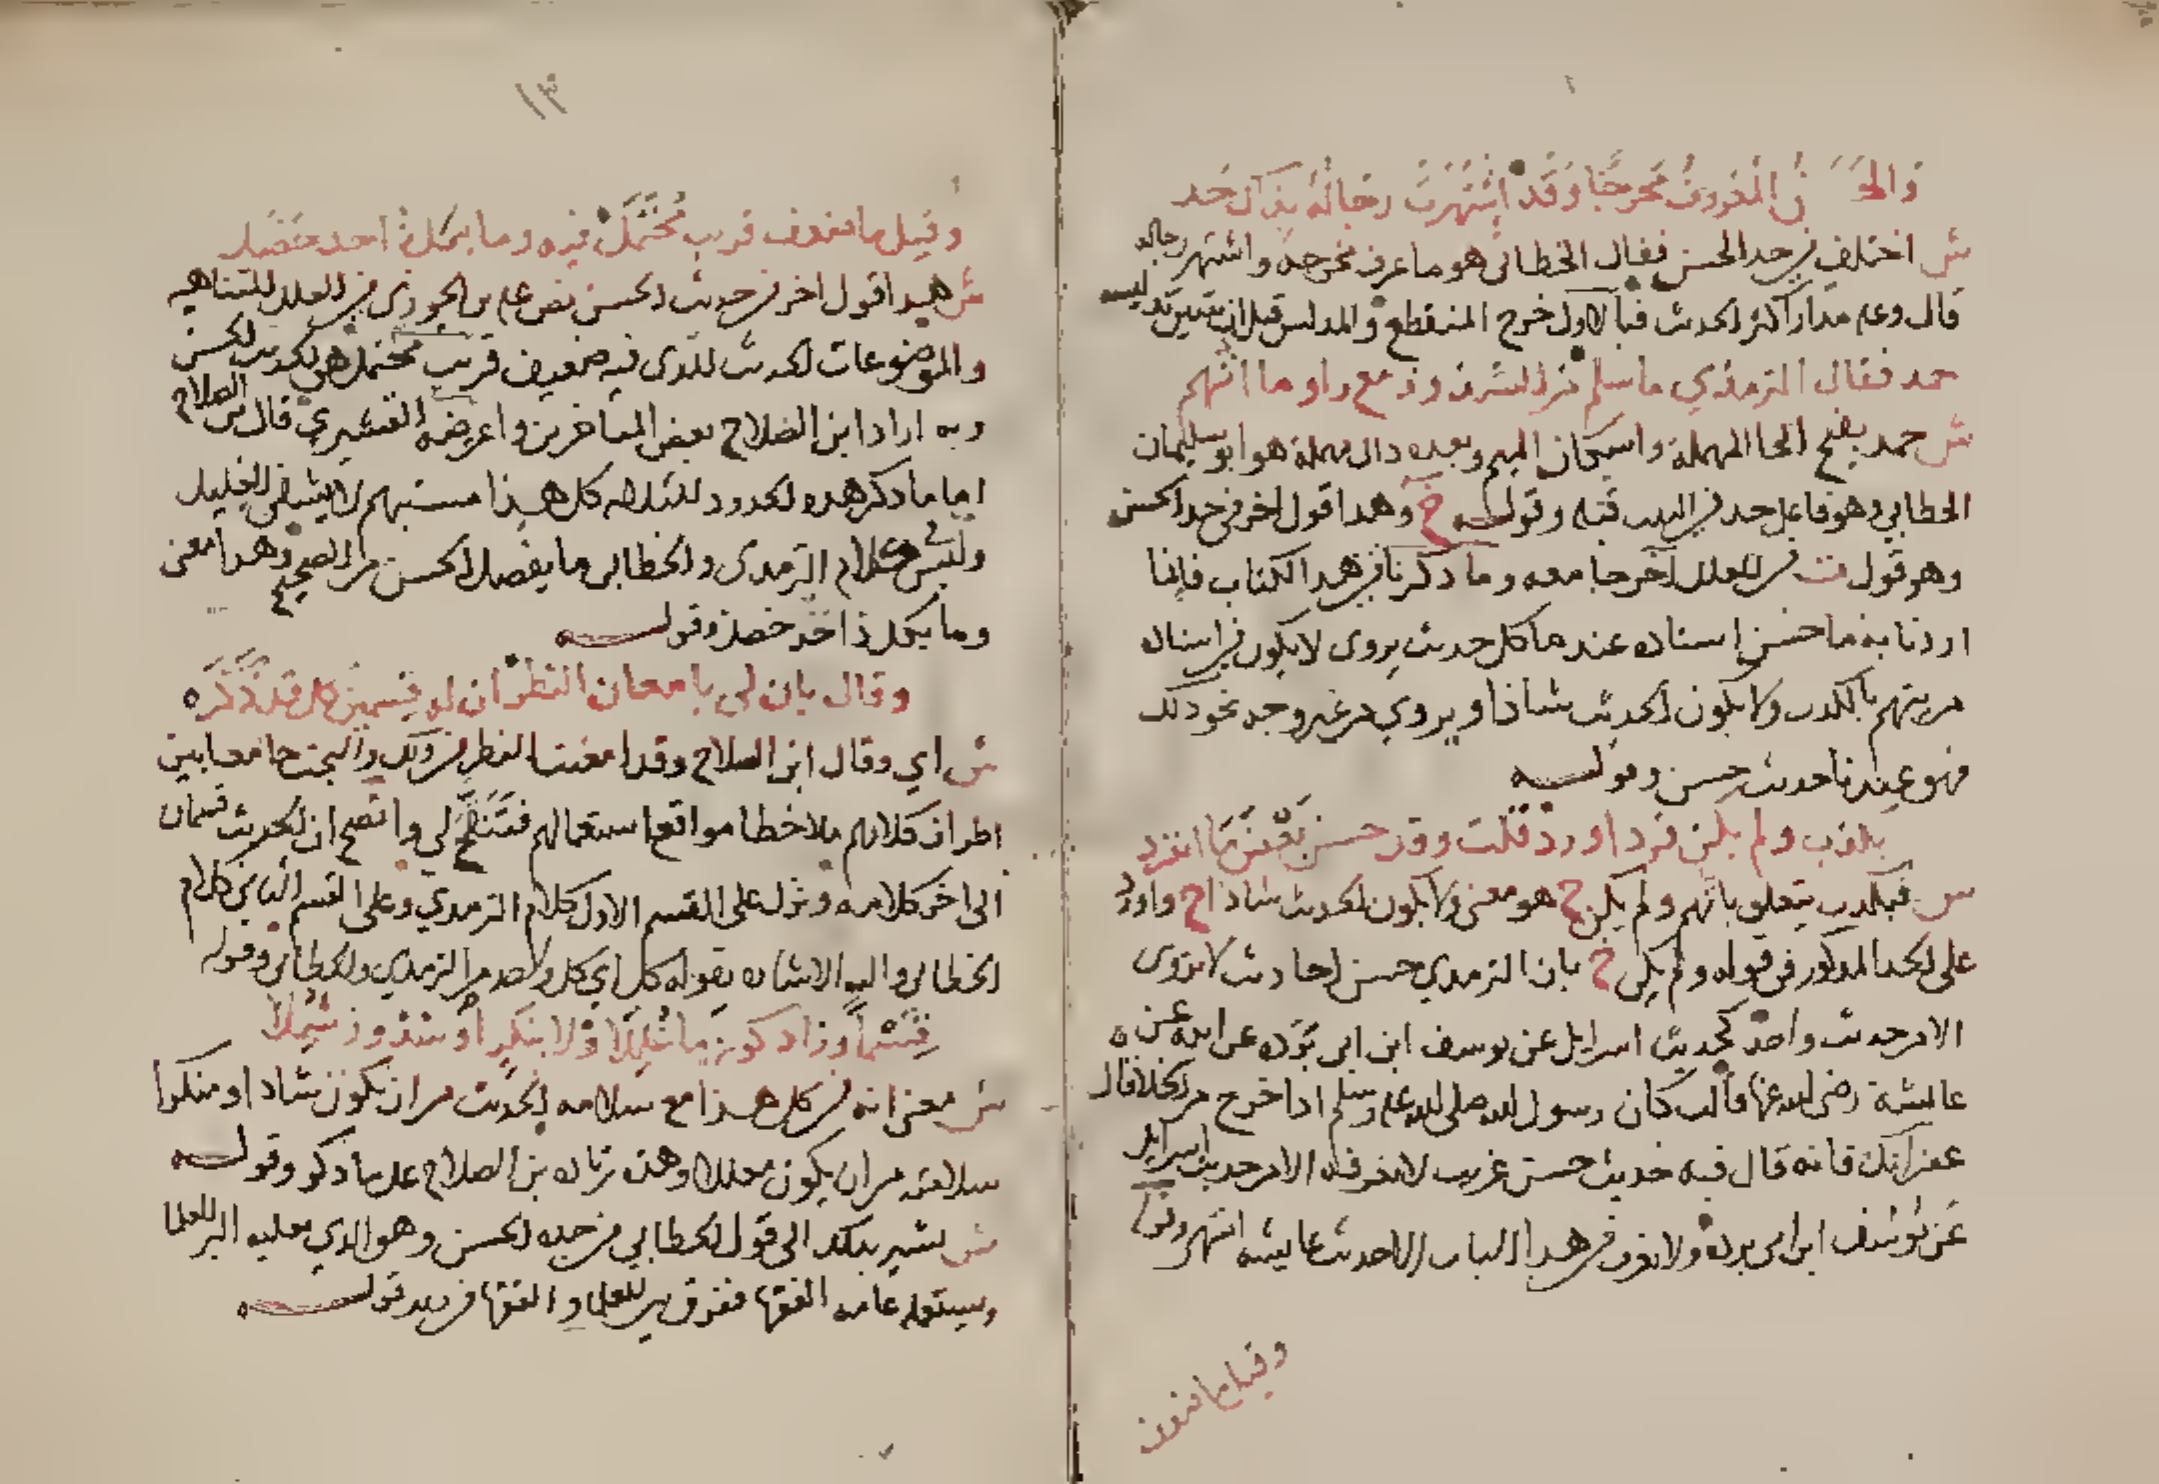 والحسن المعروف مخرجا وقد اشتهرت رجاله بذاك حد
ش اختلف في حد الحسن فقال الخطابي هو ما عرف مخرجه واشتهر رجاله
قال وعليه مدار اكثر الحديث فبالاول خرج المنقطع والمدلس قبل ان يتبين تدليسه
حمد فقال الترمذي ما سلم من الشذوذ مع راو ما اتهم
ش حمد بفتح الحا المهملة واسكان الميم وبعده دال مهملة هو ابو سليمان
الخطابي وهو فاعل حد في البيت قبله وقولـــه خ وهدا قول اخر في حد الحسن
وهو قول ت في العلل آخر جامعه وما دكرنا في هدا الكتاب فإنما
اردنا به ما حسن اسناده عندما كل حديث يروى لا يكون في اسناده
من يتهم بالكدب ولا يكون الحديث شاذا ويروي من غير وجه نحو دلك
فهو عندنا حديث حسن وقولـــه
بكذب ولم يكن فردا ورد قلت وقد حسن بعض ما انفرد
س فبكدب يتعلق باتهم ولم يكن خ هو معنى ولا يكون الحديث شادا خ واورد
على الحد المدكور في قوله ولم يكن خ بان الترمدي حسن احاديث لا تروى
الا من حديث واحد كحديث اسرايل عن يوسف ابن ابي بردة عن ابيه عن
عايشة رضي الله عنها قالت كان رسول الله صلى الله عليه وسلم ادا خرج من الخلا قال
غفرانك فانه قال فيه حديث حسن غريب لا نعرفه الا من حديث اسرايل
عن يوسف ابن ابي بردة ولا نعرف في هدا الباب الا حديث عايشه انتهى وقوله
وقيل ما ضعف
١٣
وقيل ما ضعف قريب محتمل فيه وما بكل ذا حد حصل
ش هدا قول اخر في حديث الحسن نص عليه بن الجوزي في العلل المتناهيه
والموضوعات الحديث الدى فيه ضعيف قريب محتمل هو الحديث الحسن
وبه اراد ابن الصلاح بعض المتاخرين واعرضه القشيري قال بن الصلاح
اما ما دكر هده الحدود الثلاثه كل هـذا مستبهم لا يشفي الغليل
وليس في كلام الترمدى والخطابي ما يفصل الحسن من الصحيح وهدا معنى
وما بكل ذا حد حصل وقولـــه
وقال بان لي بامعان النظر ان له قسمين كل قد ذكره
ش اي وقال ابن الصلاح وقد امعنت النظر في دلك والبحث جامعا بين
اطراف كلامهم ملاحظا مواقع استعمالهم فتنقح لي واتضح ان الحديث قسمان
الى اخر كلامه ونزل على القسم الاول كلام الترمدي وعلى القسم الثاني كلام
الخطابي واليه الاشاره بقوله كل اي كل واحد من الترمدي والخطابي وقوله
قسما وزاد كونه ما عللا ولا بنكر او شذوذ شملا
ش معنى انه في كل هـذا مع سلامه الحديث من ان يكون شادا او منكرا
سلامته من ان يكون معللا وهده زياده بن الصلاح على ما دكر وقولـــه
ش يشير بدلك الى قول الخطابي في حده الحسن وهو الدي يقبله اكثر العلما
ويستعمله عامه الفقها ففرق بين العلما والفقها فزيد قولـــه